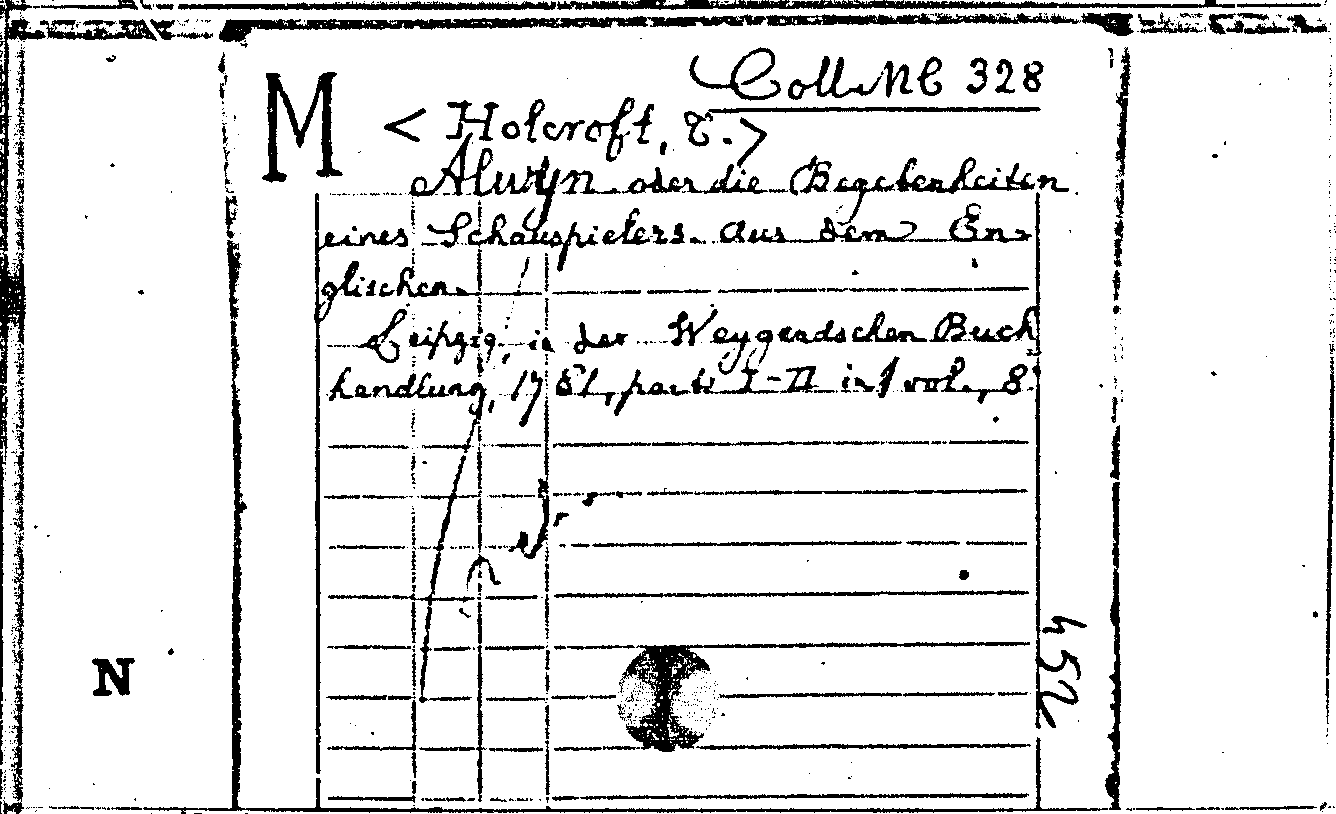 Coll. MC 328
M < Holcroft, T. >
Alwyn oder die Begebenheiten
eines Schauspielers. Aus dem En-
glischen.
Leipzig, in der Weygandschen Buch
handlung, 1781, parts I-II in 1 vol., 8°
N
452